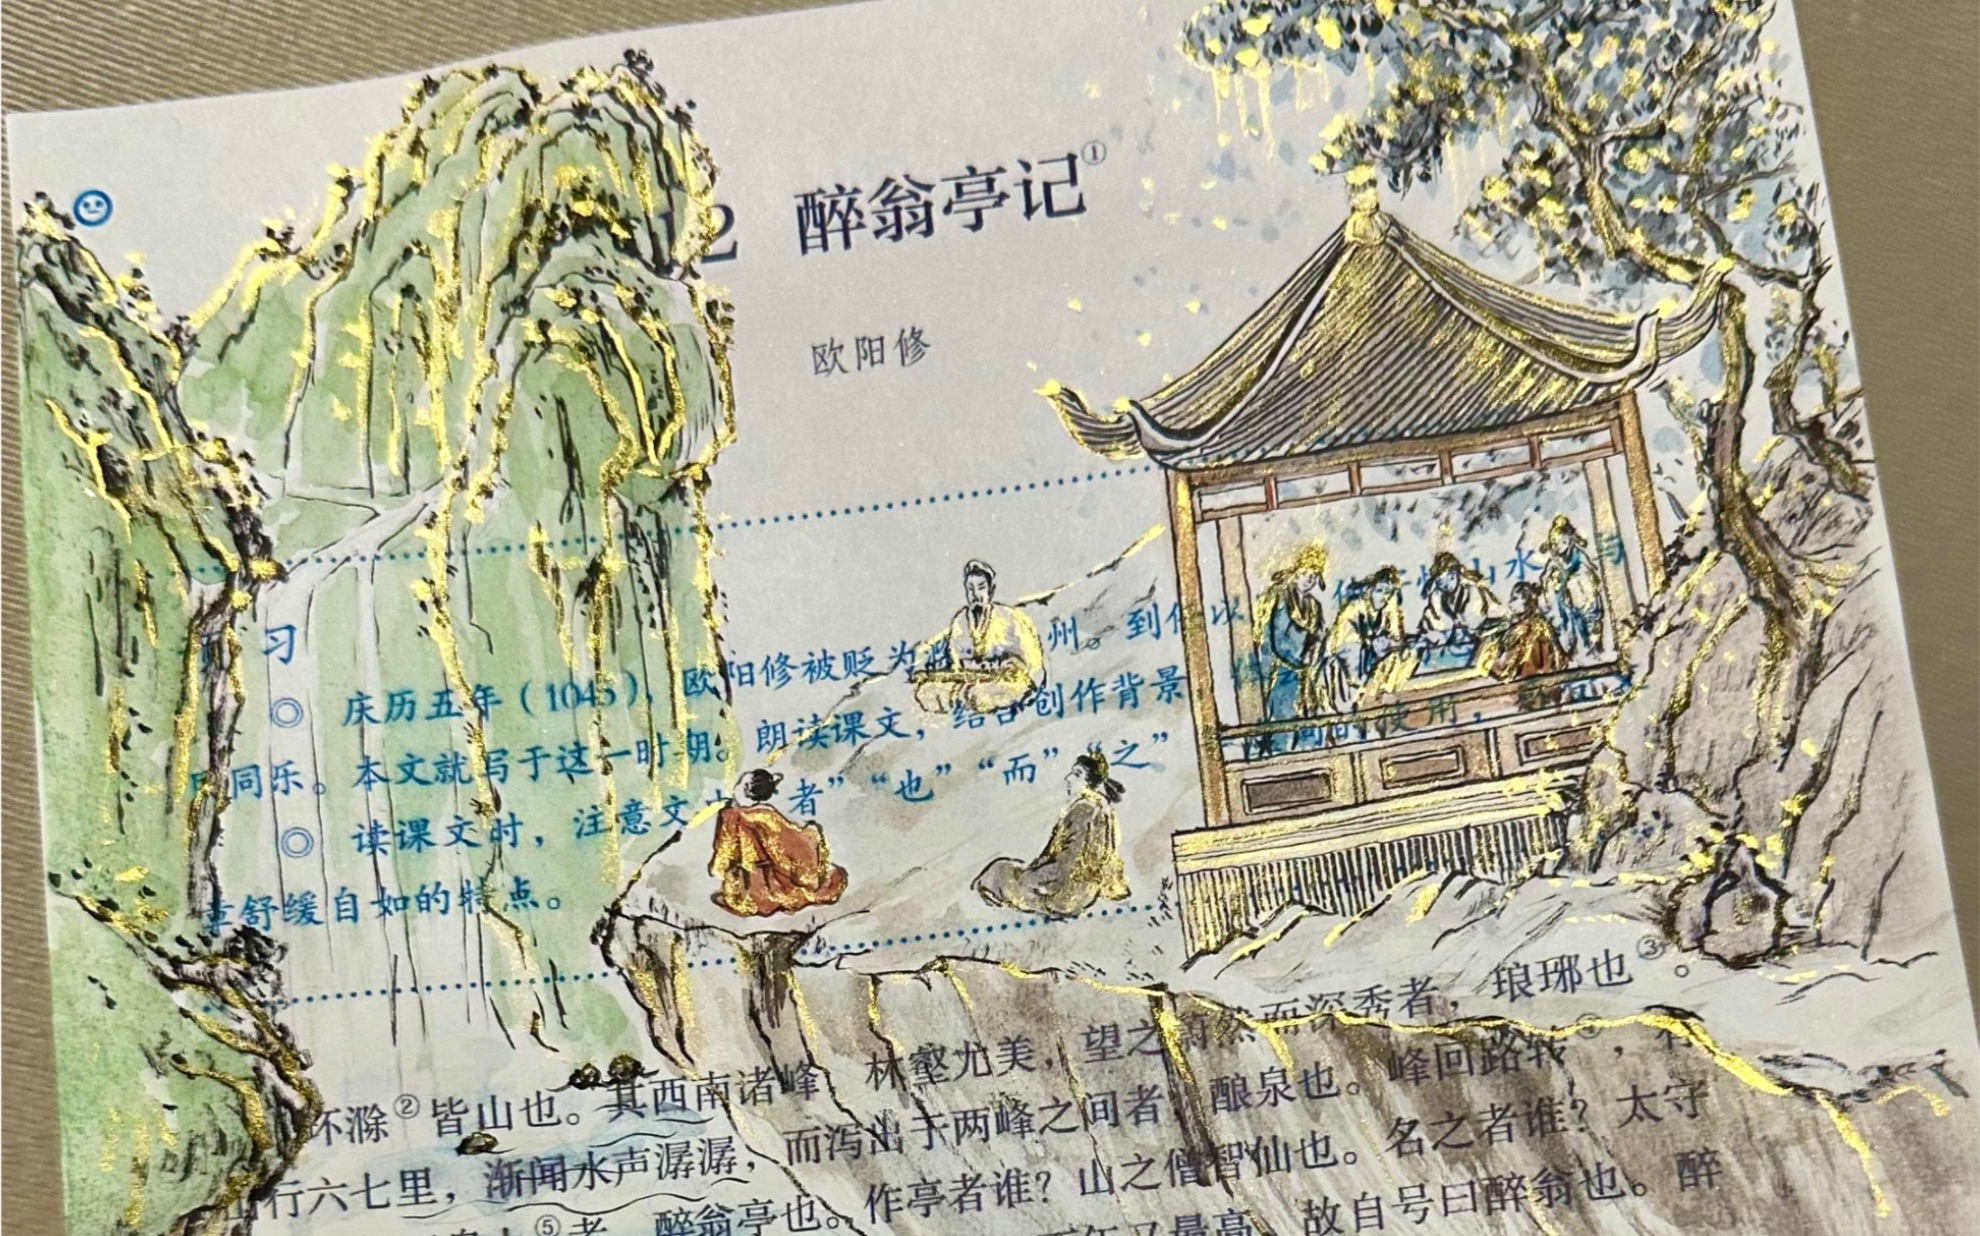 12 醉翁亭记①
欧阳修
预习
◎ 庆历五年(1045),欧阳修被贬为 州。到 以 山水 与
民同乐。本文就写于这一时期。朗读课文,结合创作背景
◎ 读课文时,注意文中“者”“也”“而”“之” 的使用,
章舒缓自如的特点。
环滁②皆山也。其西南诸峰 林壑尤美,望之蔚然而深秀者,琅琊也③。
行六七里,渐闻水声潺潺,而泻出于两峰之间者,酿泉也。峰回路转 ,有
⑤者,醉翁亭也。作亭者谁?山之僧智仙也。名之者谁?太守
年又最高,故自号曰醉翁也。醉